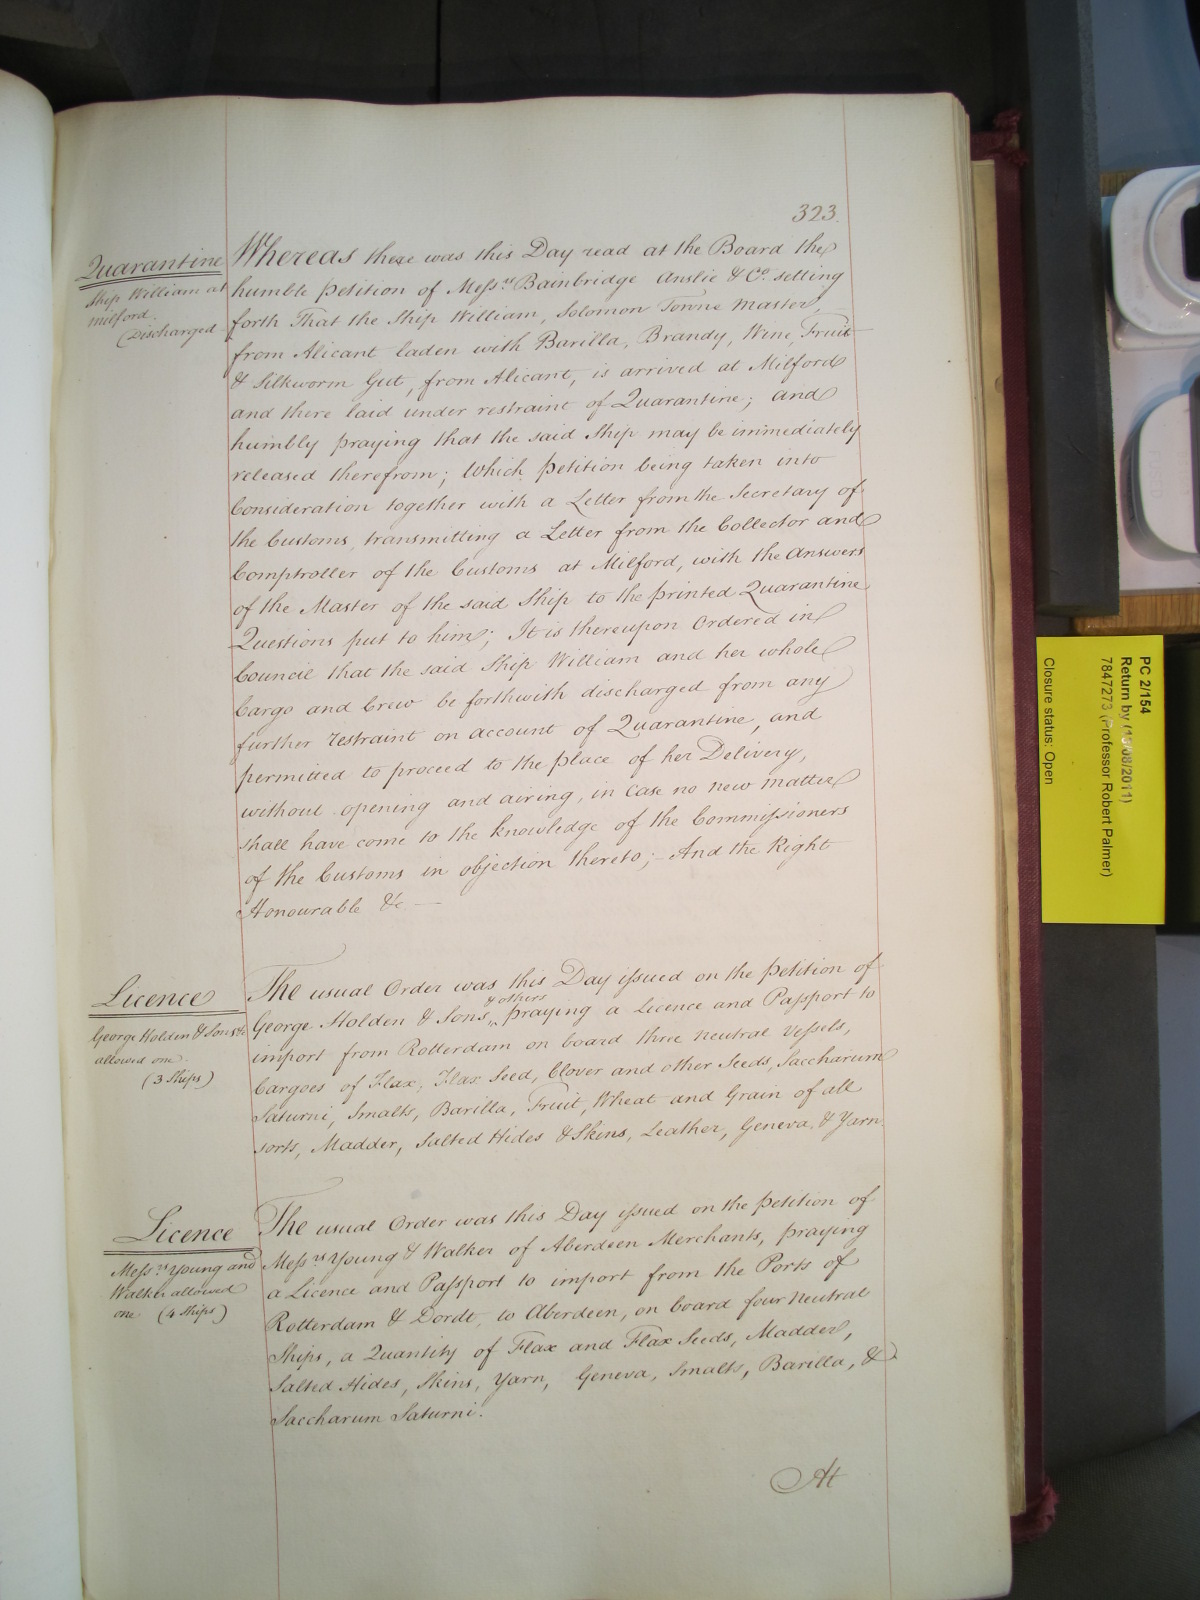 323.
Quarantine
Ship William at
Milford.
(Discharged
Whereas there was this Day read at the Board the
humble Petition of Messrs. Bainbridge Anslie & Co. setting
forth That the Ship William, Solomon Tonne Master,
from Alicant laden with Barilla, Brandy, Wine, Fruit
& Silkworm Gut, from Alicant, is arrived at Milford
and there laid under restraint of Quarantine; and
humbly praying that the said Ship may be immediately
released therefrom; Which Petition being taken into
Consideration together with a Letter from the Secretary of
the Customs, transmitting a Letter from the Collector and
Comptroller of the Customs at Milford, with the Answers
of the Master of the said Ship to the printed Quarantine
Questions put to him; It is thereupon Ordered in
Council that the said Ship William and her whole
Cargo and Crew be forthwith discharged from any
further restraint on account of Quarantine, and
permitted to proceed to the place of her Delivery,
without opening and airing, in case no new matter
shall have come to the knowledge of the Commissioners
of the Customs in objection thereto; And the Right
Honourable &c. —
Licence
George Holden & Sons &c
allowed one.
(3 Ships)
The usual Order was this Day issued on the Petition of
George Holden & Sons, & others praying a Licence and Passport to
import from Rotterdam on board three neutral Vessels,
Cargoes of Flax, Flax Seed, Clover and other Seeds, Saccharum
Saturni, Smalts, Barilla, Fruit, Wheat and Grain of all
sorts, Madder, Salted Hides & Skins, Leather, Geneva, & Yarn.
Licence
Messrs. Young and
Walker allowed
one (4 Ships)
The usual Order was this Day issued on the Petition of
Messrs. Young & Walker of Aberdeen Merchants, praying
a Licence and Passport to import from the Ports of
Rotterdam & Dordt, to Aberdeen, on board four Neutral
Ships, a Quantity of Flax and Flax Seeds, Madder,
Salted Hides, Skins, Yarn, Geneva, Smalts, Barilla, &
Saccharum Saturni.
At
PC 2/154
Return by (13/08/2011)
7847273 (Professor Robert Palmer)
Closure status: Open